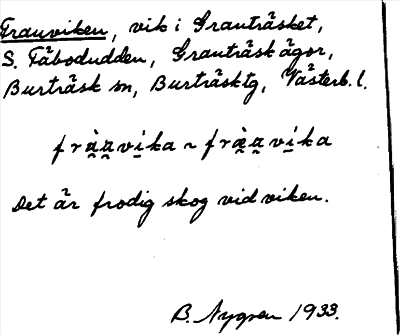 Frauviken, vik i Granträsket,
S. Fäbodudden, Granträsk ägor,
Burträsk sn, Burträsktg, Västerb. l.
fràa̯vi̱ka ~ fræ̀a̯vi̱ka
Det är frodig skog vid viken.
B. Nygren 1933.